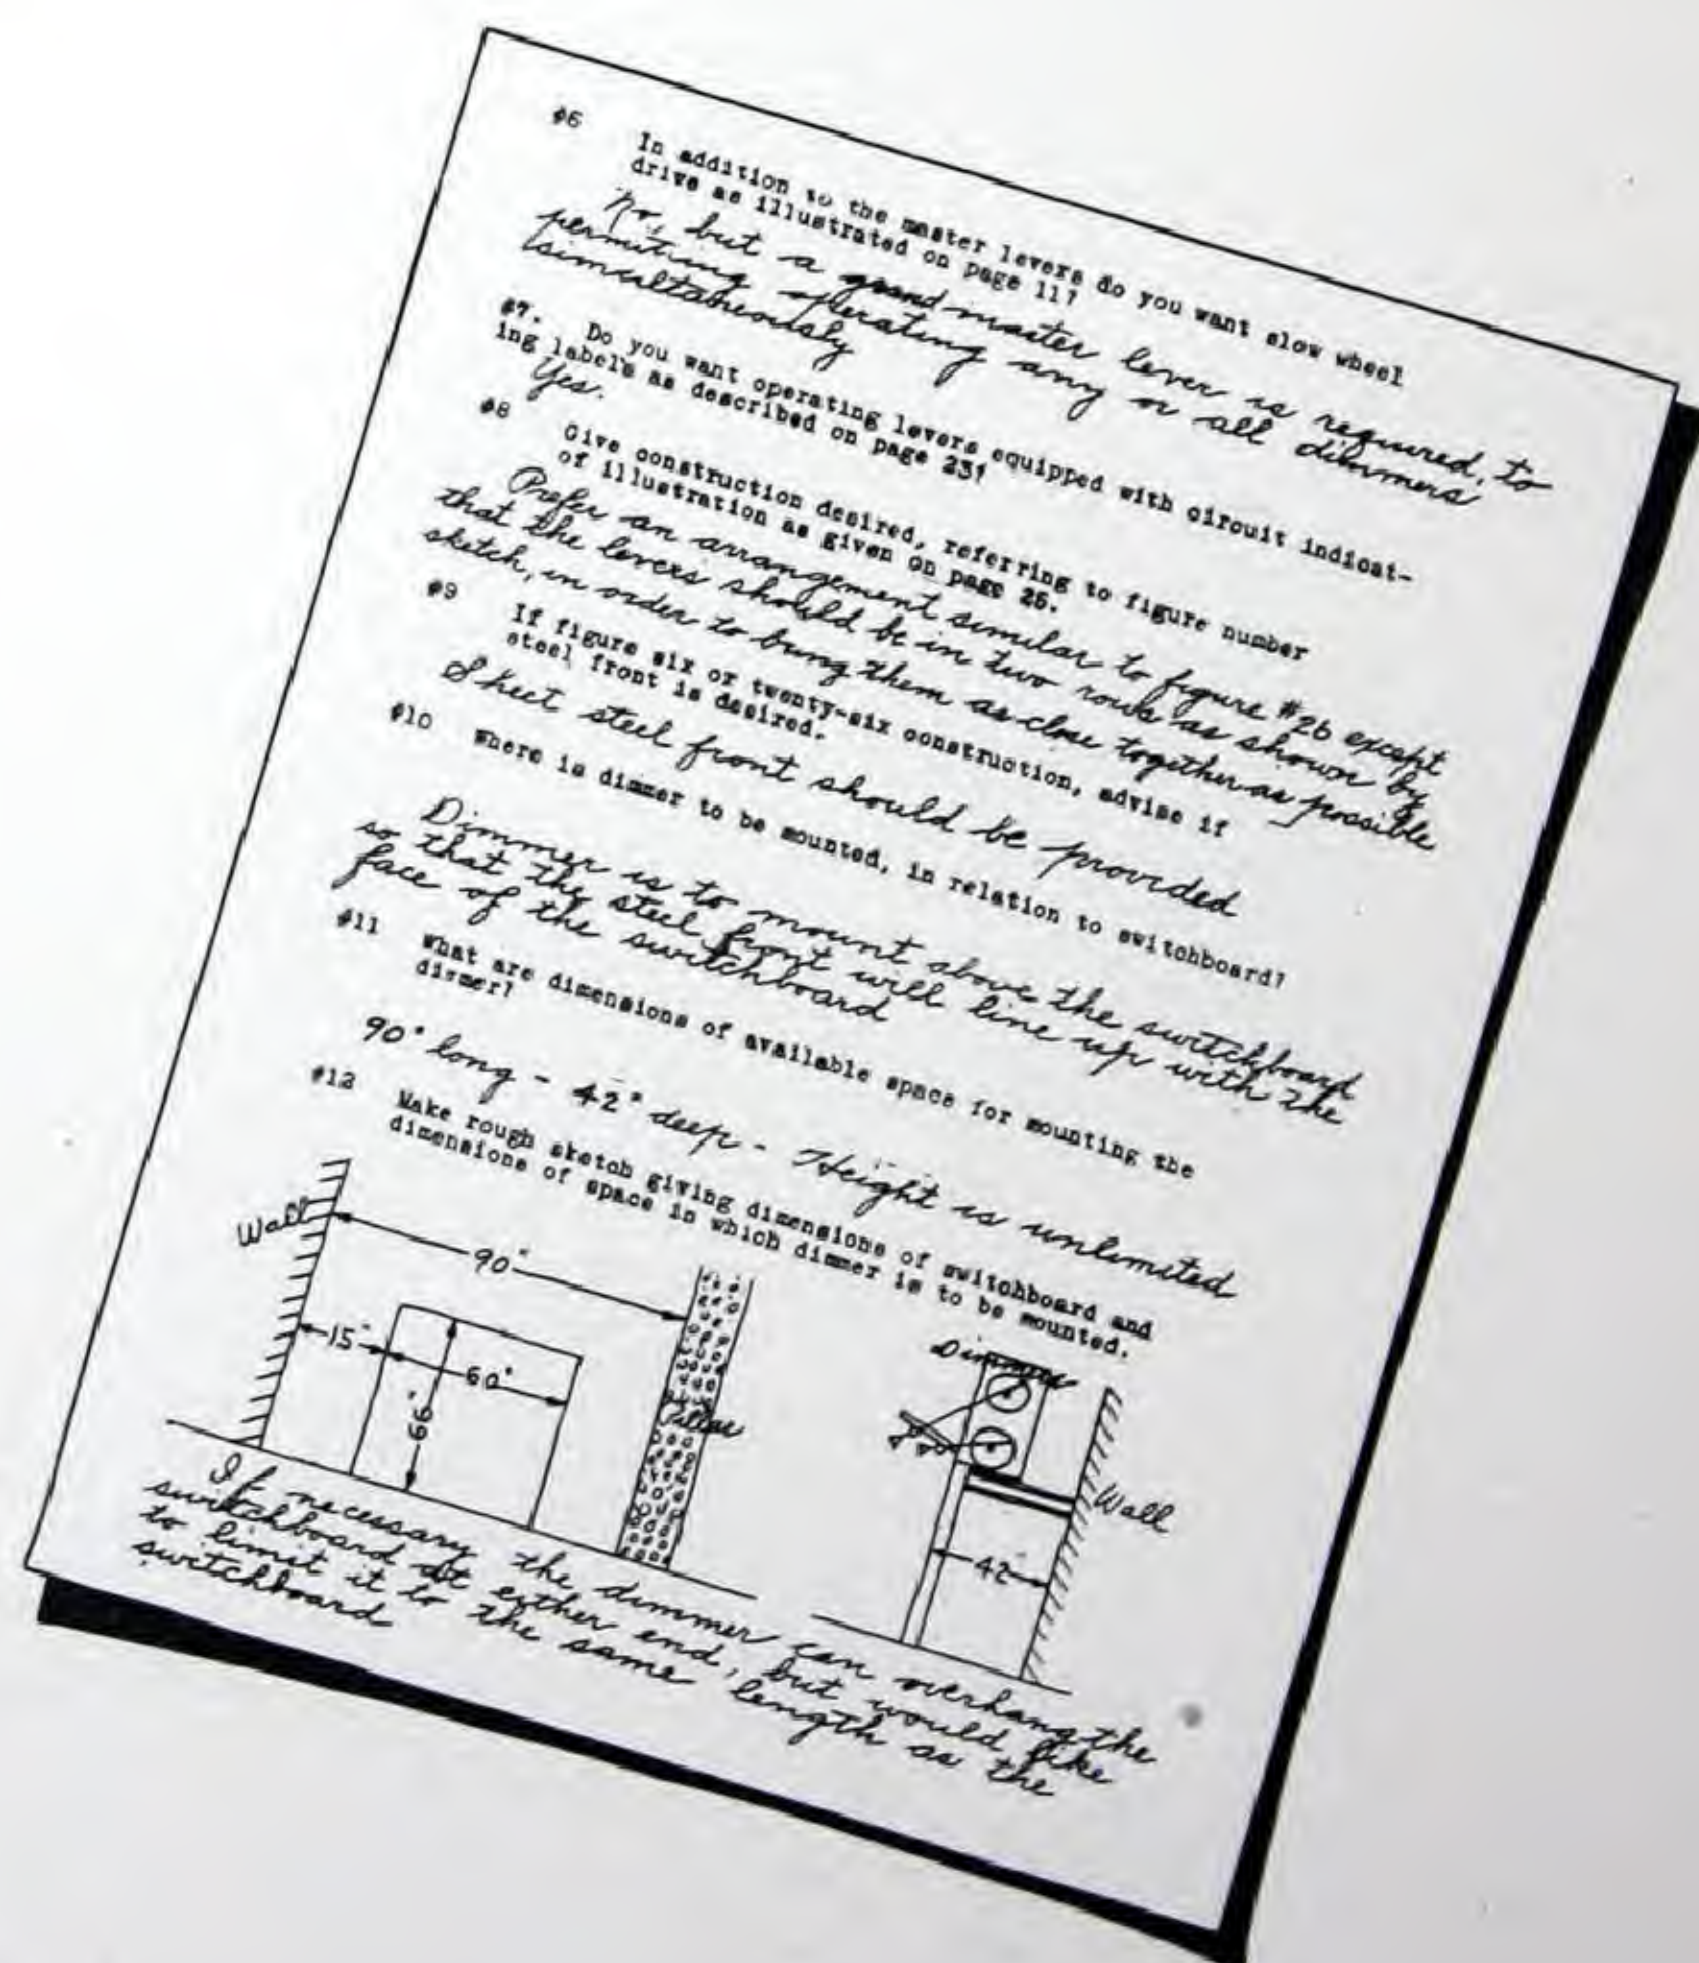 #6 In addition to the master levers do you want slow wheel
drive as illustrated on page 11?
No, but a grand master lever is required, to
permiting operating any or all dimmers
simultaneously
#7. Do you want operating levers equipped with circuit indicat-
ing labels as described on page 23?
Yes.
#8 Give construction desired, referring to figure number
of illustration as given on page 25.
Prefer an arrangement similar to figure #26 except
that the levers should be in two rows as shown by
sketch, in order to bring them as close together as possible
#9 If figure six or twenty-six construction, advise if
steel front is desired.
Sheet steel front should be provided
#10 Where is dimmer to be mounted, in relation to switchboard?
Dimmer is to mount above the switchboard
so that the steel front will line up with the
face of the switchboard
#11 What are dimensions of available space for mounting the
dimmer?
90" long - 42" deep - Height is unlimited
#12 Make rough sketch giving dimensions of switchboard and
dimensions of space in which dimmer is to be mounted.
Wall
90"
15"
60"
66"
Pillar
Dimmer
Wall
42"
If necessary the dimmer can overhang the
switchboard at either end, but would like
to limit it to the same length as the
switchboard